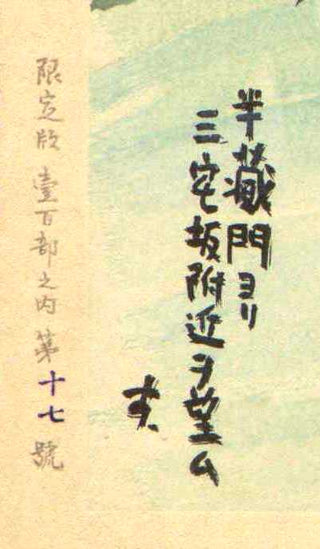 半蔵門ヨリ
三宅坂附近ヲ望ム
限定版 壹百部之内第十七號